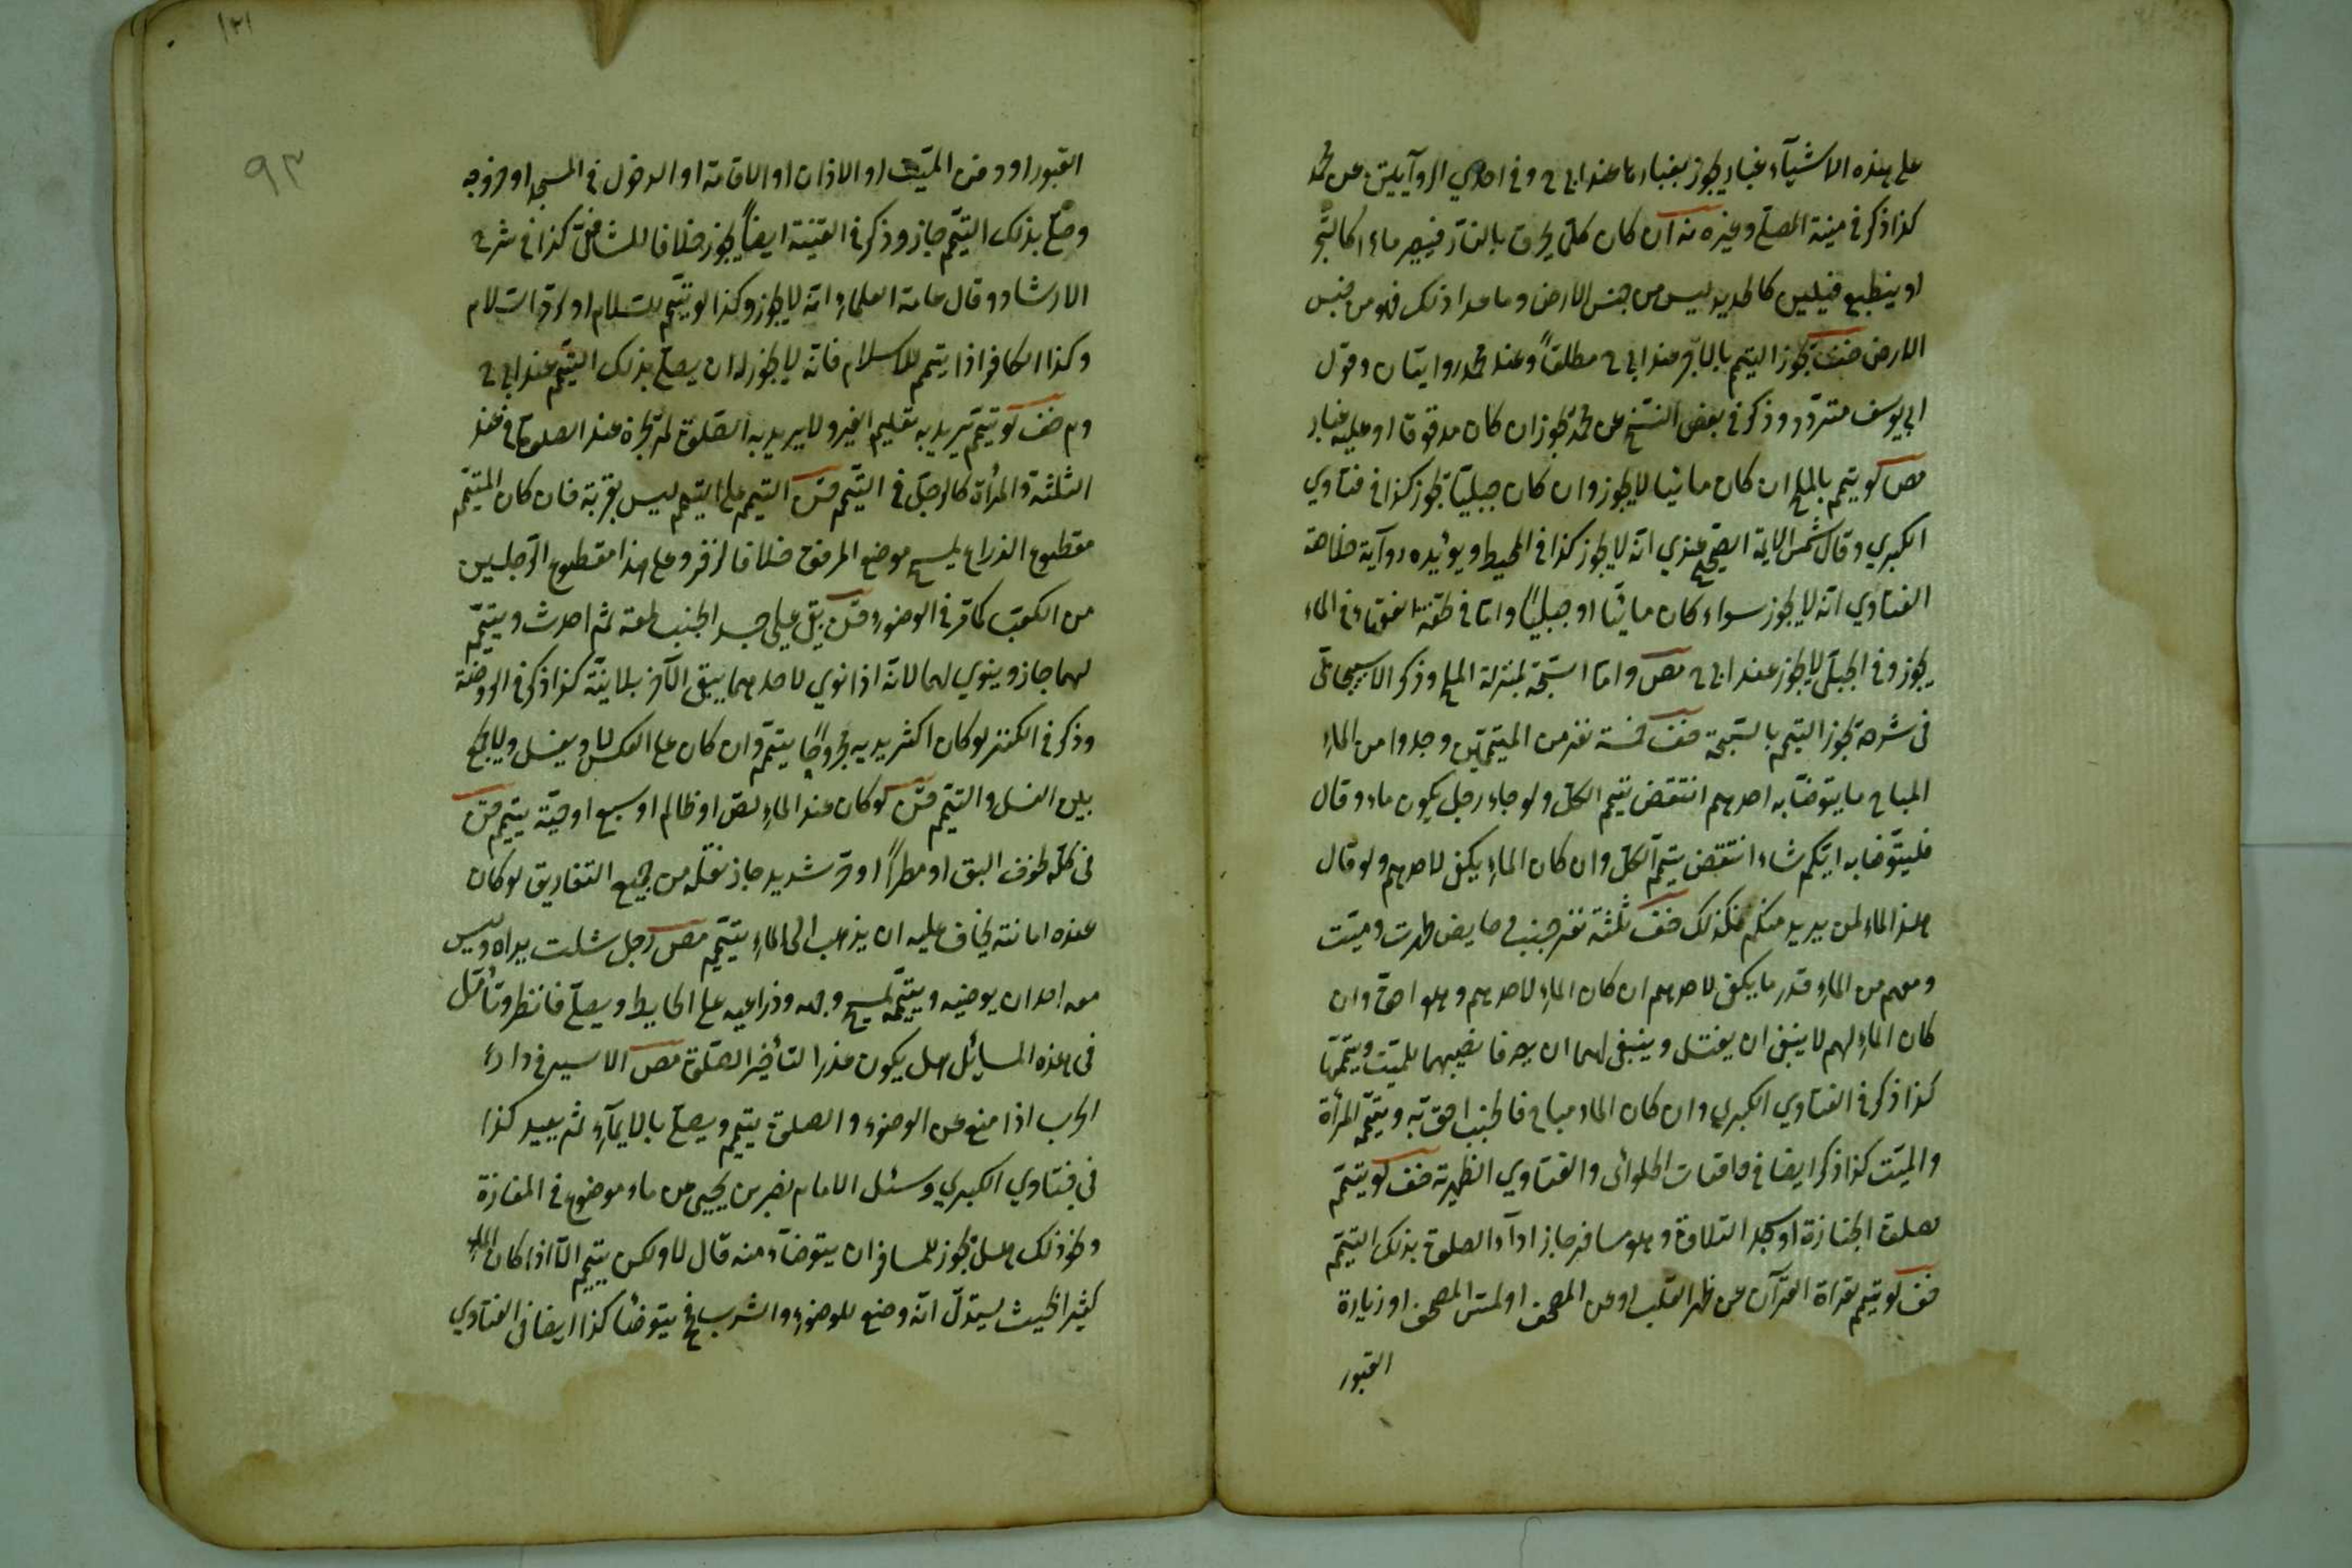 على هذه الاشيآء غبار يجوز بغبارها عند ابى ح وفى احدي الروآيتين عن محمد
كذا ذكر فى منية المصلى وغيره من ان كان كلما يحرق بالنار فيصير مادا كالشجر
او ينطبع فيلين كالحديد ليس من جنس الارض وما عدا ذلك فهو من جنس
الارض ضف يجوز التيمم بالآجر عند ابى ح مطلقاً وعند محمد روايتان وقول
ابى يوسف متردد وذكر فى بعض النسخ عن محمد يجوز ان كان مدقوقا او عليه غبار
مص لو تيمم بالملح ان كان مائيا لا يجوز وان كان جبلياً يجوز كذا فى فتاوي
الكبري وقال شمس الايمة الصحيح عندي انه لا يجوز كذا فى المحيط ويؤيده روآية خلاصة
الفتاوي انه لا يجوز سواء كان مائيا او جبلياً واما فى تحفة الفقهاء فى الماء
يجوز وفى الجبلى لا يجوز عند ابى ح مص واما السبخة بمنزلة الملح وذكر الاسبيجابى
فى شرحه يجوز التيمم بالسبخة ضف خمسة نفر من المتيممين وجدوا من الماء
المباح ما يتوضأ به احدهم انتقض تيمم الكل ولو جاء رجل بكون ماء وقال
فليتوضا به ايكم شاء انتقض تيمم الكل وان كان الماء يكفى لاحدهم ولو قال
هذا الماء لمن يريد منكم فكذلك ضف ثلثة نفر جنب و حايض طهرت وميت
ومعهم من الماء قدر ما يكفى لاحدهم ان كان الماء لاحدهم وهو احق وان
كان الماء لهم لا ينبغى ان يغتسل وينبغى لهما ان يصرفا نصيبهما للميت ويتيمما
كذا ذكر فى الفتاوي الكبري وان كان الماء مباح فالجنب احق به وتيمم المرأة
والميت كذا ذكر ايضا فى واقعات الحلوائى والفتاوي الظهيرة ضف لو تيمم
لصلوة الجنازة او سجد التلاوة وهو مسافر جاز ادآء الصلوة بذلك التيمم
ضف لو تيمم لقرأة القرآن عن ظهر القلب او عن المصحف او لمس المصحف او زيارة
القبور
١٢١
٩٣
القبور او دفن الميت او الاذان او الاقامة او الدخول فى المسجد او خروجه
وصلى بذلك التيمم جاز وذكر فى القنية ايضاً يجوز خلافا للشافعى كذا فى شرح
الارشاد وقال عامة العلماء انه لا يجوز وكذا لو تيمم للسلام او لرد السلام
وكذا الكافر اذا تيمم للاسلام فانه لا يجوز له ان يصلى بذلك التيمم عند ابى ح
وم ضف لو تيمم يريد به تعليم الغير ولا يريد به الصلوة لم تجزه عند الصلوة فى عند
الثلثة والمرأة كالرجل فى التيمم التيمم على التيمم ليس بقربة فان كان المتيمم
مقطوع الذراع يمسح موضع المرفق خلافا لزفر وعلى هذا مقطوع الرجلين
من الكعب كما مر فى الوضوء بقى على جسد الجنب لمعة ثم احدث وتيمم
لهما جاز وينوي لهما لانه اذا نوي لاحدهما يبقى الآخر بلا نية كذا ذكر فى الروضة
وذكر فى الكنز لو كان اكثر يديه مجروحاً يتيمم وان كان على العكس لا ويغسل ولا يجمع
بين الغسل والتيمم لو كان عند الماء لص او ظالم او سبع او حية يتيمم
فى كله لخوف البق او مطراً او حر شديد جاز نقله من جميع التفاريق لو كان
عنده امانة يخاف عليه ان يذهب الى الماء يتيمم مص رجل شلت يداه وليس
معه احد ان يوضيه وييممه يمسح وجهه وذراعيه على الحايط ويصلى فانظر وتأمل
فى هذه المسائل هل يكون عذرا لتأخير الصلوة مص الاسير فى دار
الحرب اذا منع عن الوضوء والصلوة يتيمم ويصلى بالايمآء ثم يعيد كذا
فى فتاوي الكبري وسئل الامام نصر بن يحيى عن ماء موضوع فى المفازة
ونحو ذلك هل يجوز للمسافر ان يتوضأء منه قال لا ولكن يتيمم الا اذا كان الماء
كثيرا بحيث يستدل انه وضع للوضوء والشرب فح يتوضأ كذا ايضا فى الفتاوي